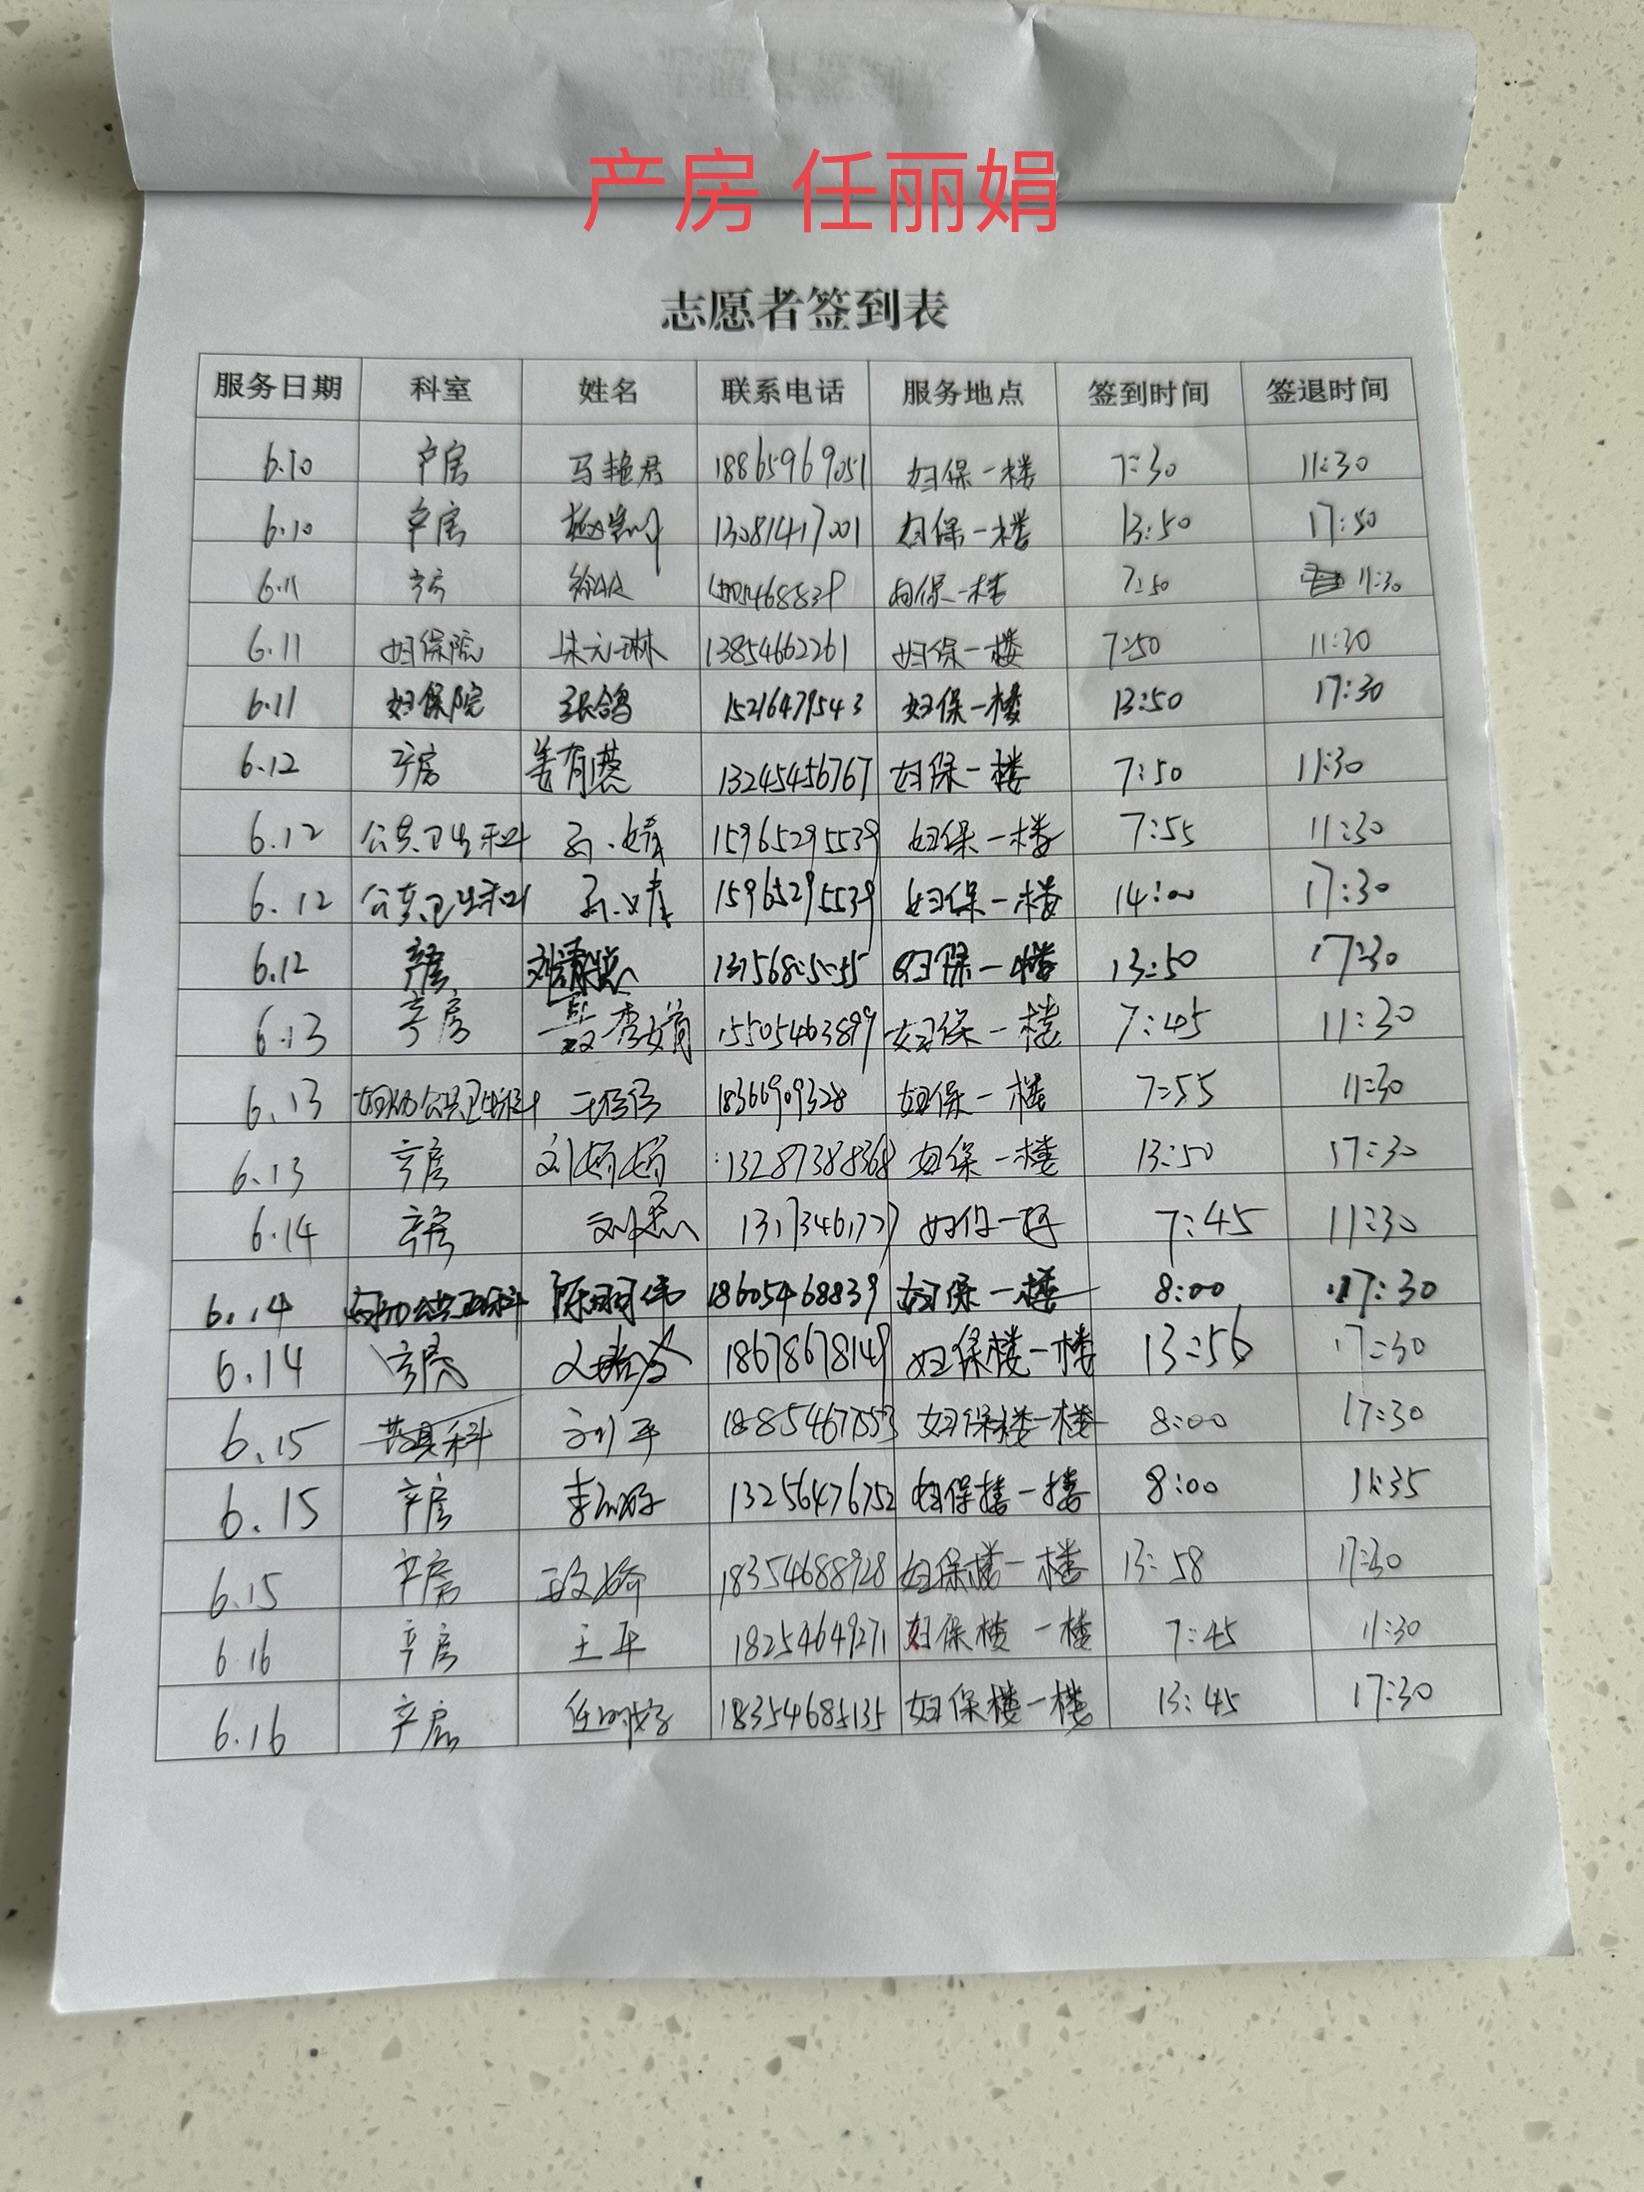 产房 任丽娟
志愿者签到表
服务日期 科室 姓名 联系电话 服务地点 签到时间 签退时间
6.10 产房 马艳君 18865969051 妇保一楼 7:30 11:30
6.10 产房 13081417001 妇保一楼 13:50 17:50
6.11 产房 妇保一楼 7:50 11:30
6.11 妇保院 朱元琳 13854662261 妇保一楼 7:50 11:30
6.11 妇保院 张鸽 15216479543 妇保一楼 13:50 17:30
6.12 产房 13245456767 妇保一楼 7:50 11:30
6.12 公共卫生科 孙婧 15965295539 妇保一楼 7:55 11:30
6.12 公共卫生科 孙婧 15965295539 妇保一楼 14:00 17:30
6.12 产房 妇保一楼 13:50 17:30
6.13 产房 15505463899 妇保一楼 7:45 11:30
6.13 妇幼公共卫生科 18366909328 妇保一楼 7:55 11:30
6.13 产房 刘娟娟 13287388368 妇保一楼 13:50 17:30
6.14 产房 妇保一楼 7:45 11:30
6.14 妇幼公共卫生科 陈翔伟 18605468839 妇保一楼 8:00 17:30
6.14 产房 18678678149 妇保楼一楼 13:56 17:30
6.15 刘平 18854677553 妇保楼一楼 8:00 17:30
6.15 产房 13256476752 妇保楼一楼 8:00 11:35
6.15 产房 18354688928 妇保楼一楼 13:58 17:30
6.16 产房 王平 18254649271 妇保楼一楼 7:45 11:30
6.16 产房 任丽娟 18354685135 妇保楼一楼 13:45 17:30